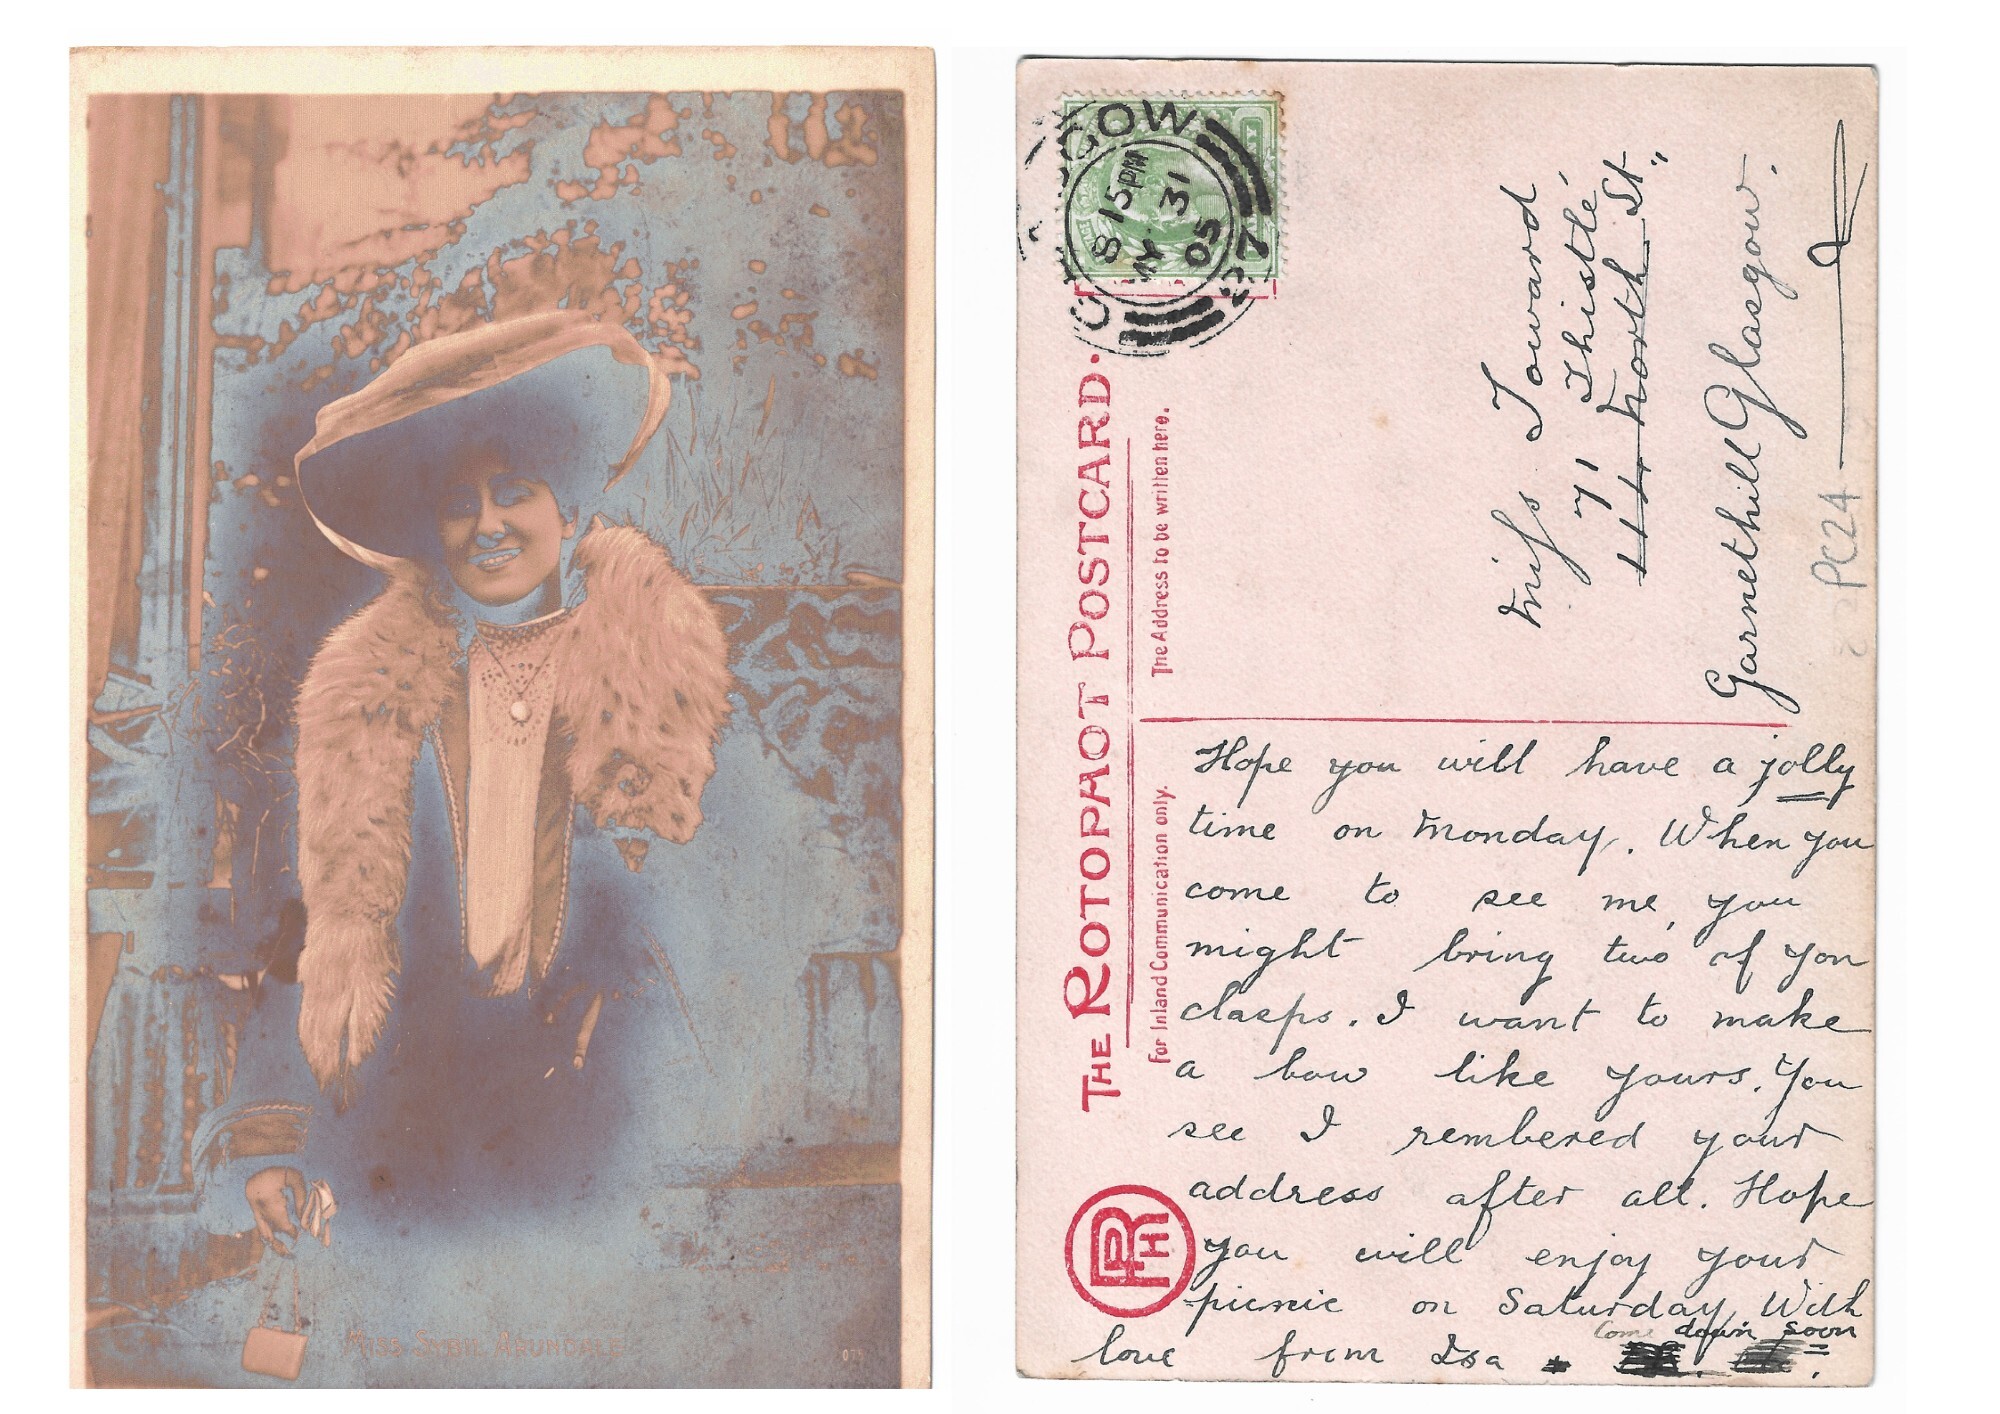 MISS SYBIL ARUNDALE
GLASGOW
8 15PM
MY 31
05
THE ROTOPAOT POSTCARD.
The Address to be written here.
For Inland Communication only.
Miss Toward
71 Thistle,
44 North St.,
Garnethill Glasgow.
PC24
Hope you will have a jolly
time on Monday. When you
come to see me, you
might bring two of you
clasps. I want to make
a bow like yours. You
see I rembered your
address after all. Hope
you will enjoy your
picnic on Saturday, With
Come down soon
love from Isa